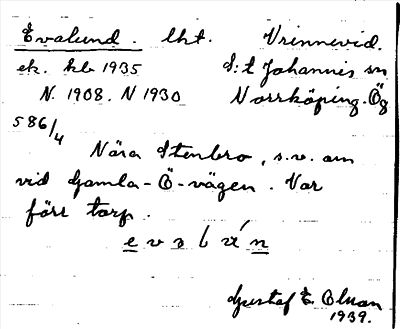 Evalund. lht. Vrinnevid.
ek. kb 1935 S:t Johannis sn
N. 1908. N 1930 Norrköping. Ög
586/4
Nära Stenbro, s.v. om
vid Gamla-Ö-vägen. Var
förr torp.
Gustaf E. Olsson
1939.